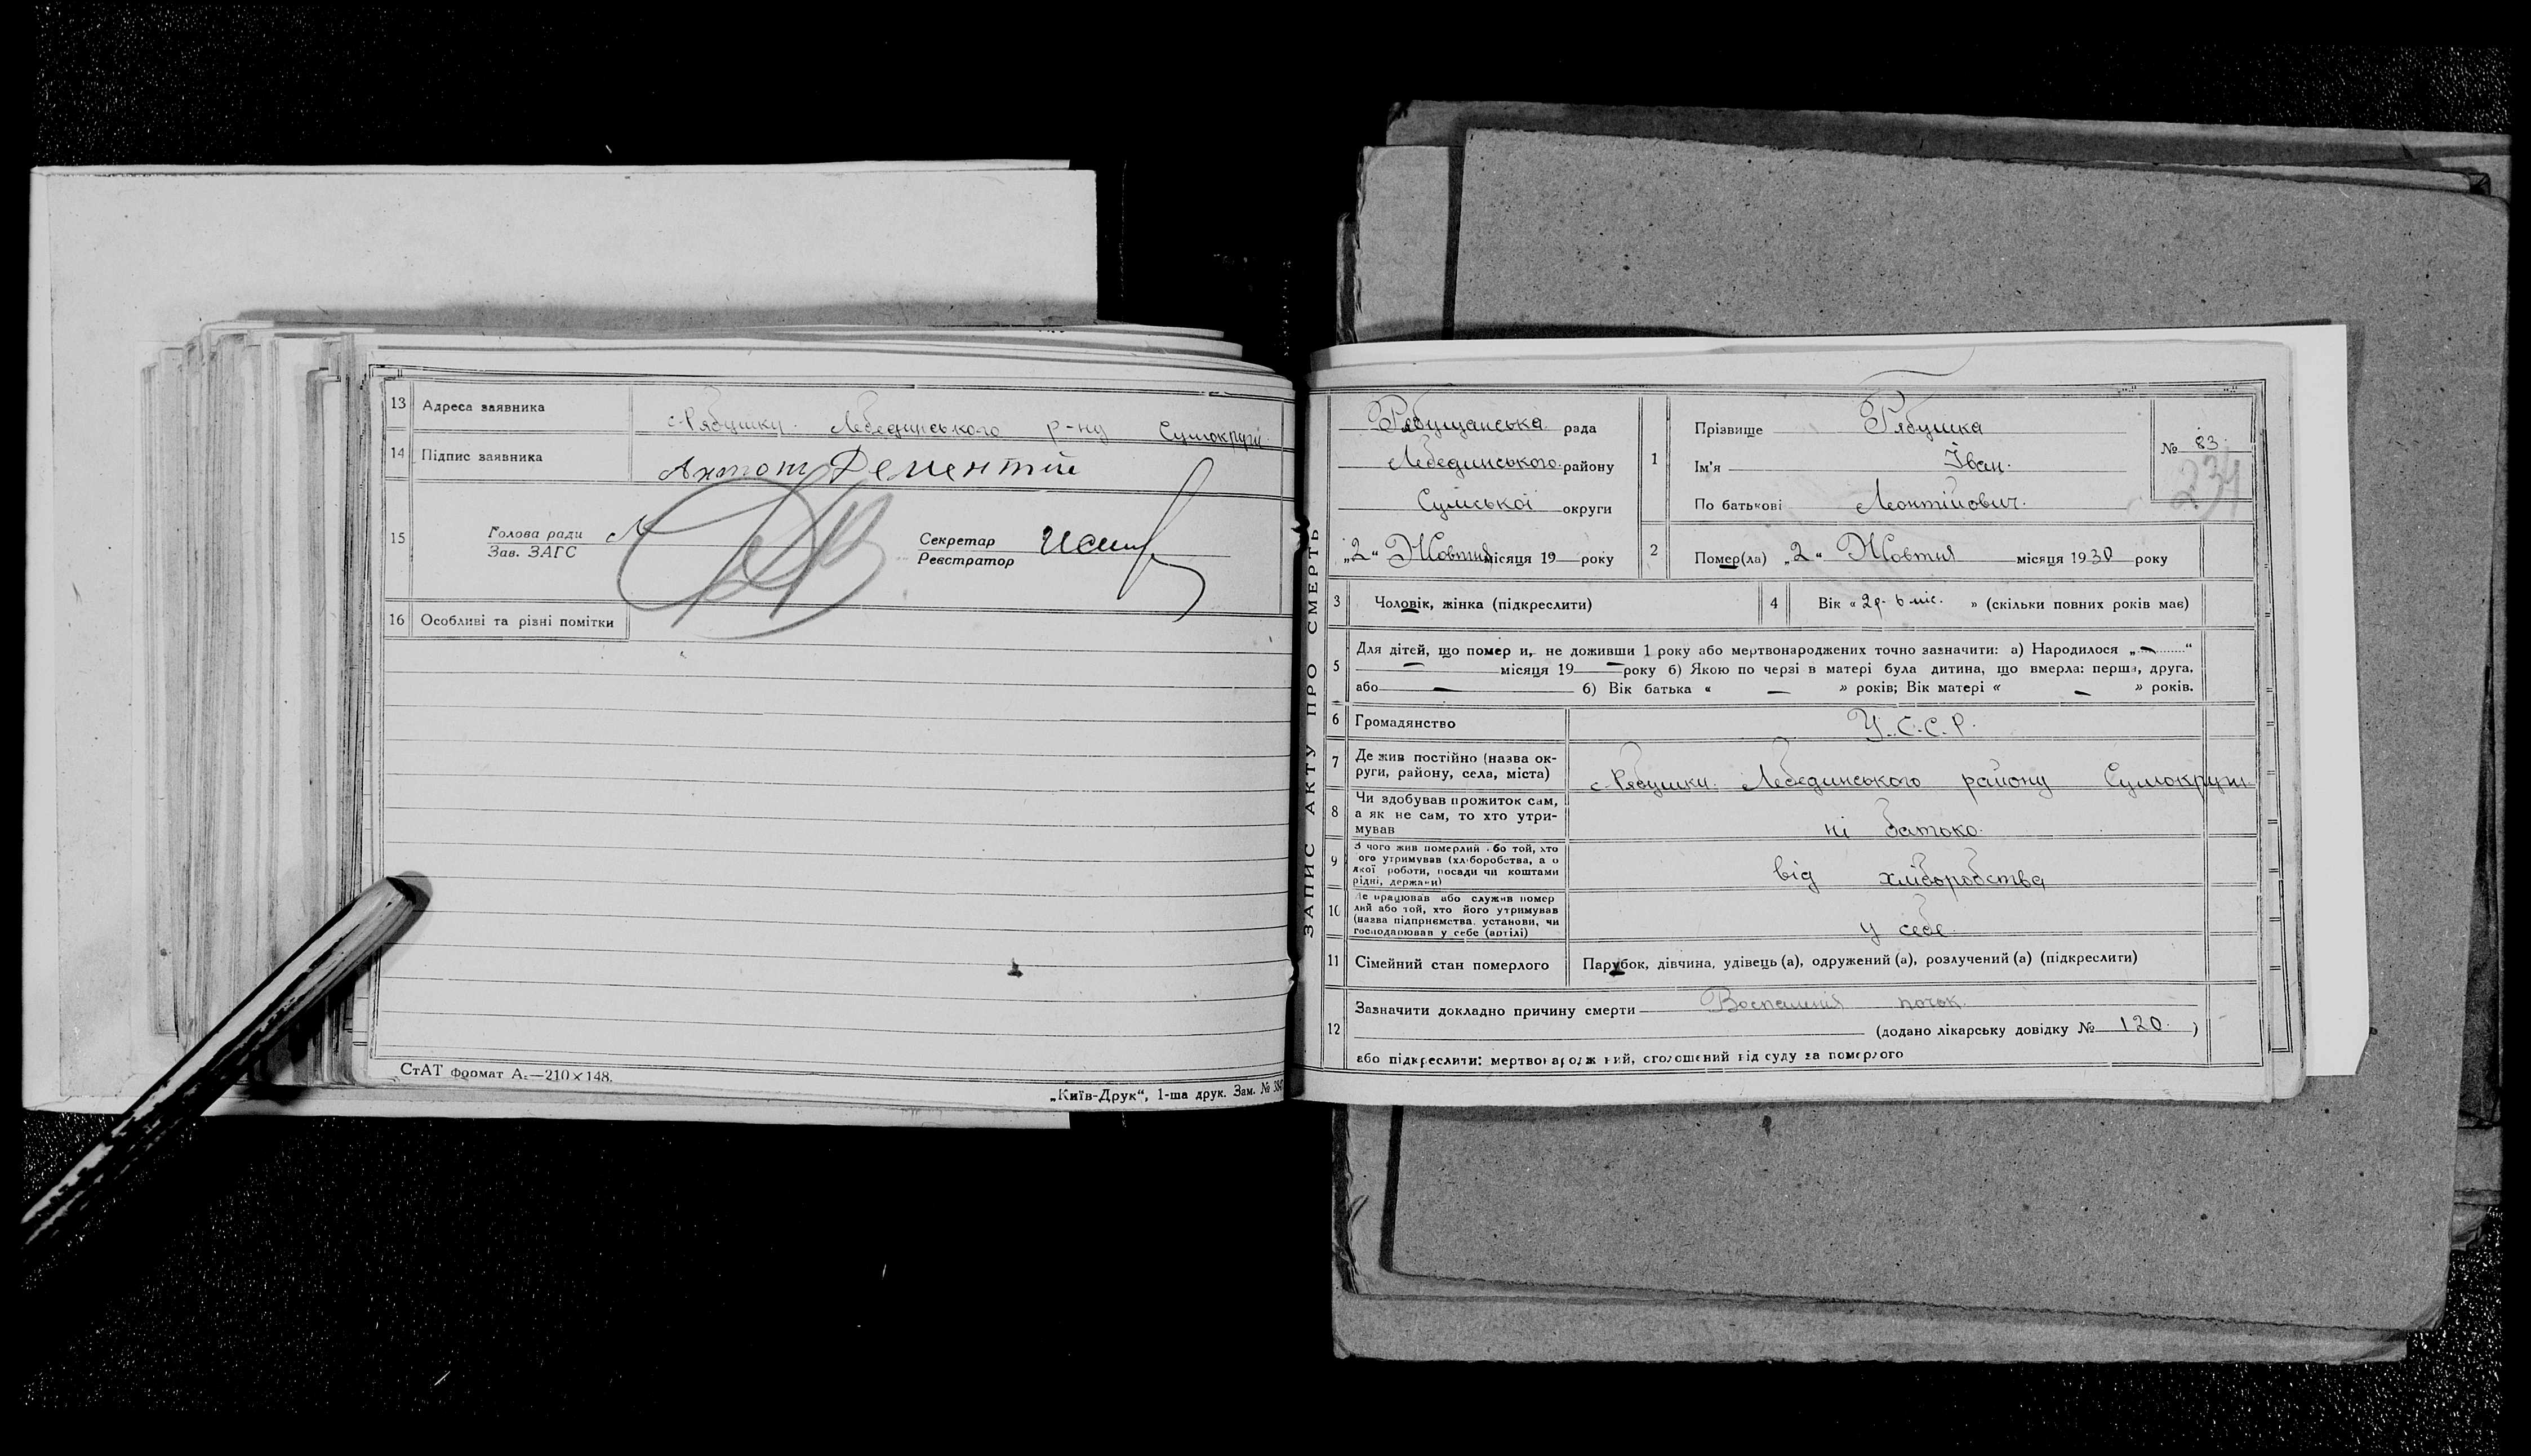 13 Адреса заявника с. Рябушки. Лебединського р-ну Сумокруги
14 Підпис заявника Дементій
15 Голова ради
Зав. ЗАГС
Секретар
Реєстратор
16 Особливі та різні помітки
СтАТ формат А₅—210×148.
„Київ-Друк“, 1-ша друк. Зам. №
ЗАПИС АКТУ ПРО СМЕРТЬ
Рябущанська рада
Лебединського району
Сумської округи
„2“ Жовтня місяця 19 року
1 Прізвище Рябушка
Ім'я Іван.
По батькові Леонтійович.
№ 83
234
2 Помер(ла) „2“ Жовтня місяця 1930 року
3 Чоловік, жінка (підкреслити)
4 Вік « 2 р. 6 міс. » (скільки повних років має)
5 Для дітей, що померли, не доживши 1 року або мертвонароджених точно зазначити: а) Народилося „ — “
— місяця 19 — року б) Якою по черзі в матері була дитина, що вмерла: перша, друга,
або — б) Вік батька « — » років; Вік матері « — » років.
6 Громадянство У.С.С.Р.
7 Де жив постійно (назва ок-
руги, району, села, міста) с. Рябушки. Лебединського району Сумокруги
8 Чи здобував прожиток сам,
а як не сам, то хто утри-
мував ні батько.
9 З чого жив померлий або той, хто
його утримував (хліборобства, а о
якої роботи, посади чи коштами
рідні, держави) від хліборобства
10 Де працював або служив помер
лий або той, хто його утримував
(назва підприємства, установи, чи
господарював у себе (артілі) у себе.
11 Сімейний стан померлого Парубок, дівчина, удівець (а), одружений (а), розлучений (а) (підкреслити)
12 Зазначити докладно причину смерти Воспаления почок.
(додано лікарську довідку № 120. )
або підкреслити: мертвонароджений, оголошений від суду за померлого